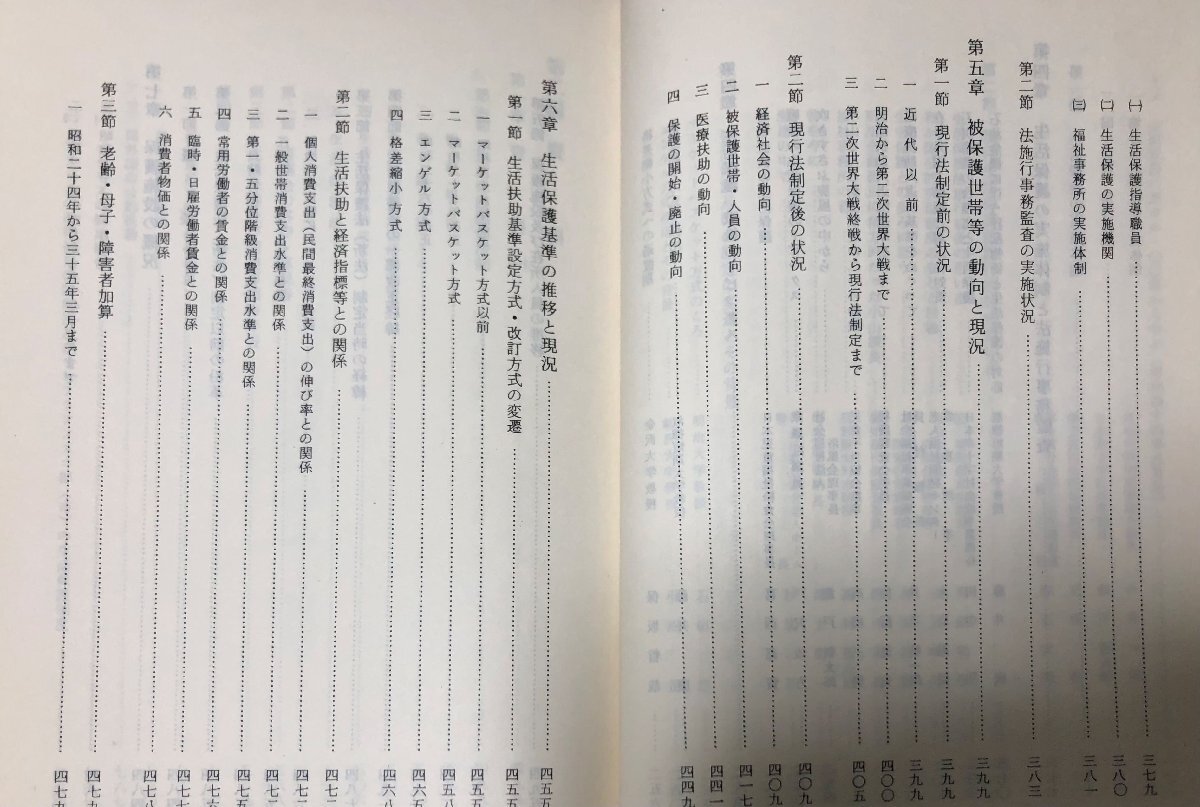 ㈠ 生活保護指導職員……三七九
㈡ 生活保護の実施機関……三八〇
㈢ 福祉事務所の実施体制……三八一
第二節 法施行事務監査の実施状況……三八三
第五章 被保護世帯等の動向と現況……三九九
第一節 現行法制定前の状況……三九九
一 近代以前……三九九
二 明治から第二次世界大戦まで……四〇〇
三 第二次世界大戦終戦から現行法制定まで……四〇五
第二節 現行法制定後の状況……四〇九
一 経済社会の動向……四〇九
二 被保護世帯・人員の動向……四一七
三 医療扶助の動向……四四一
四 保護の開始・廃止の動向……四四九
第六章 生活保護基準の推移と現況……四五五
第一節 生活扶助基準設定方式・改訂方式の変遷……四五五
一 マーケットバスケット方式以前……四五五
二 マーケットバスケット方式……四五八
三 エンゲル方式……四六五
四 格差縮小方式……四六八
第二節 生活扶助と経済指標等との関係……四七二
一 個人消費支出（民間最終消費支出）の伸び率との関係……四七二
二 一般世帯消費支出水準との関係……四七二
三 第一・五分位階級消費支出水準との関係……四七五
四 常用労働者の賃金との関係……四七六
五 臨時・日雇労働者賃金との関係……四七七
六 消費者物価との関係……四七八
第三節 老齢・母子・障害者加算……四七九
一 昭和二十四年から三十五年三月まで……四七九